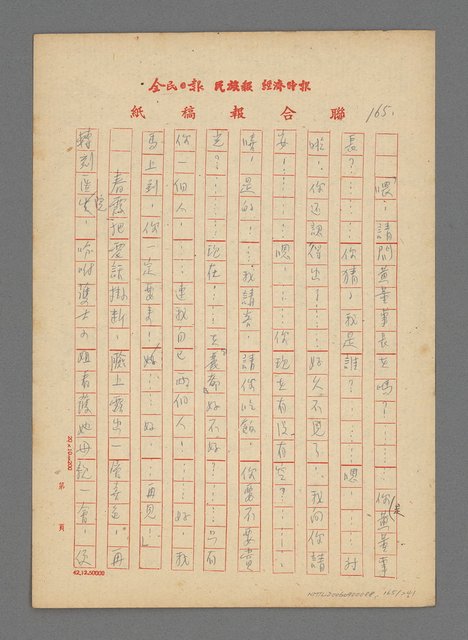 全民日報 民族報 經濟時報
聯合報稿紙
165.
「喂!請問黃董事長在嗎?……你是黃董事
長?……你猜,我是誰?……嗯……對
啦!你還認得出?……好久不見了……我向你請
安!……嗯……你現在有沒有空?……
唔,是的……我請客,請你吃飯,你要不要賞
光?……現在……去「義都」好不好?……只有
你一個人,……連我自己兩個人!……好,我
馬上到,你一定要來!……好……好……再見」
春霞把電話掛斷,臉上露出一喜色,再
轉到醫院,吩咐護士小姐看護她母親一會,便
20×10=200
第 頁
42.12.50000
165/241